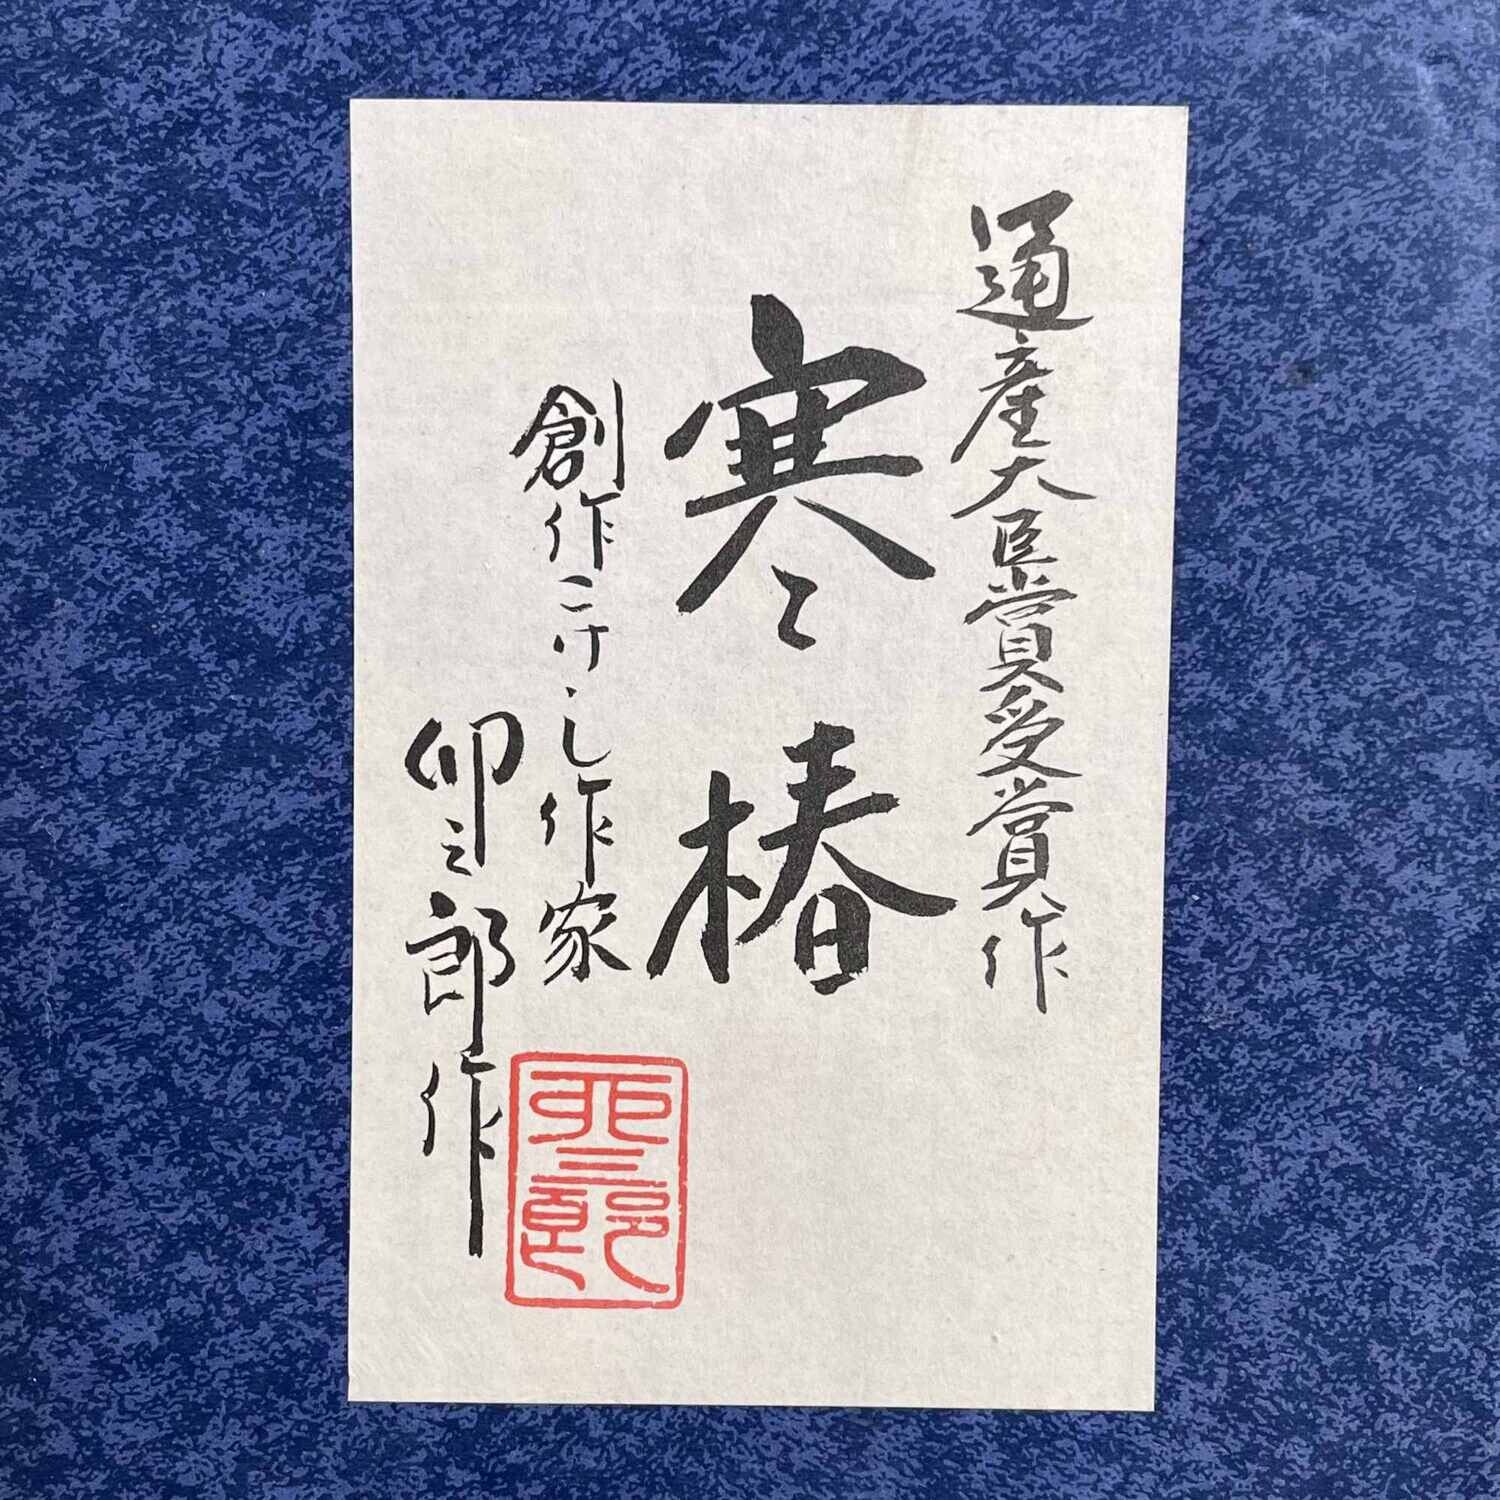 通産大臣賞受賞作
寒椿
創作こけし作家
卯三郎作
卯三郎